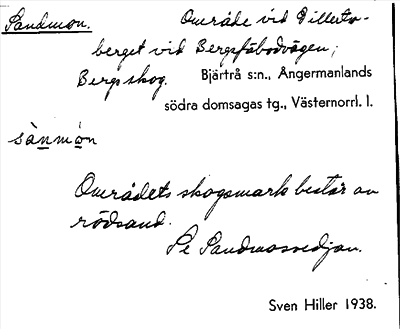 Sandmon. Område vid Gillerts-
berget vid Bergsfäbodvägen,
Bergs skog. Bjärtrå s:n., Ångermanlands
södra domsagas tg., Västernorrl. l.
sànmòn
Områdets skogsmark består av
rödsand.
Se Sandmosvedjan.
Sven Hiller 1938.